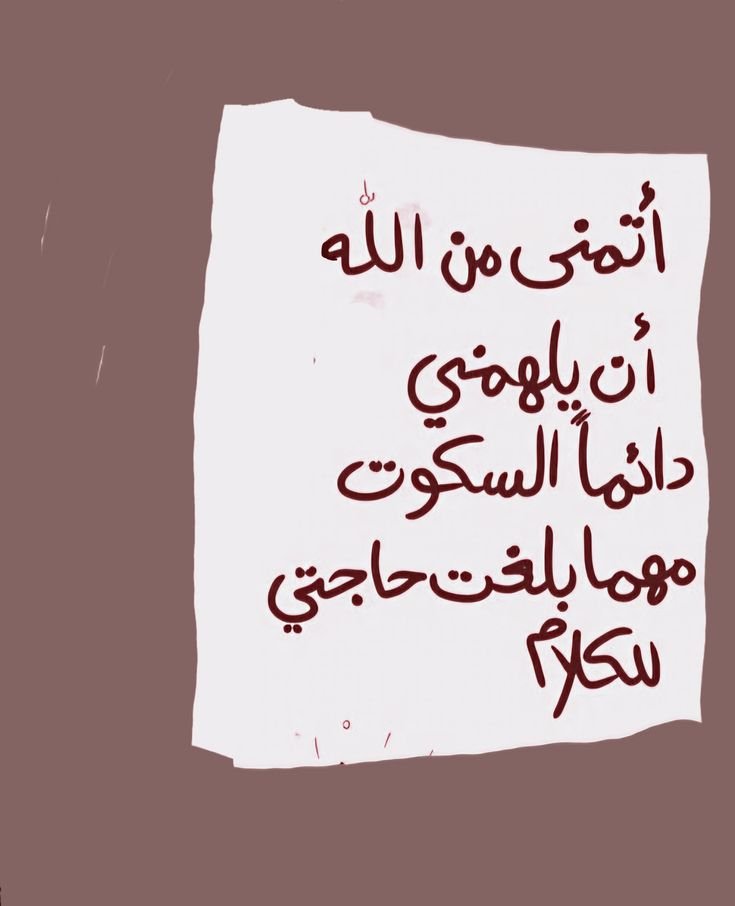 أتمنى من الله
أن يلهمني
دائماً السكوت
مهما بلغت حاجتي
للكلام